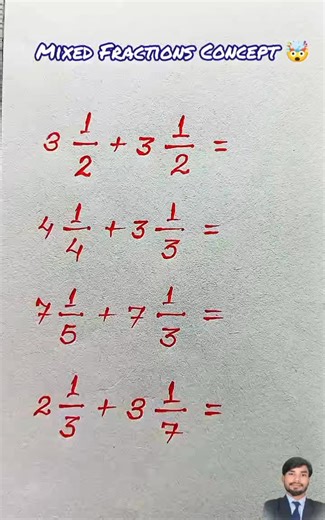 Mixed Fractions Concept 🤯
3 1/2 + 3 1/2 =
4 1/4 + 3 1/3 =
7 1/5 + 7 1/3 =
2 1/3 + 3 1/7 =